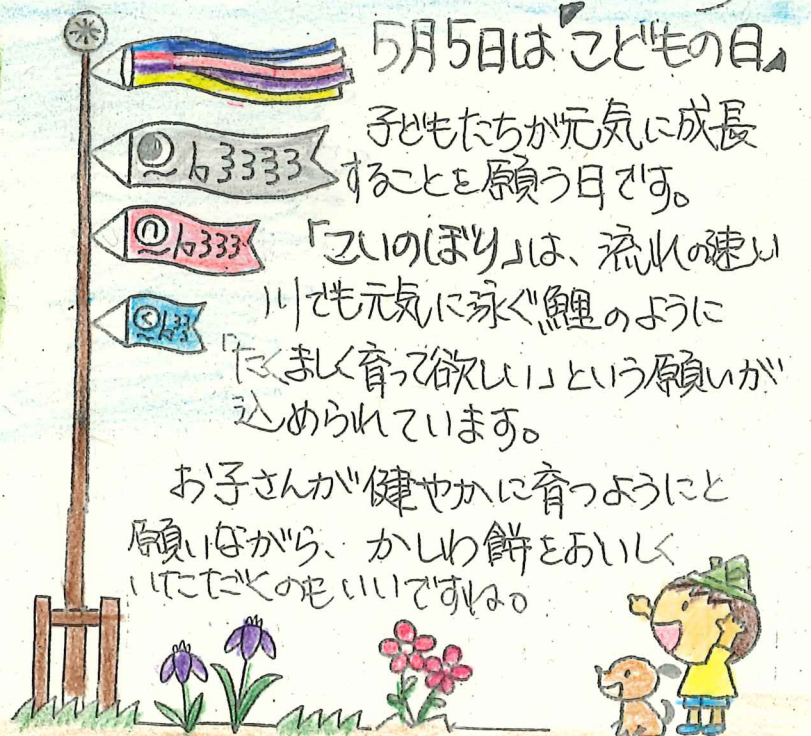 5月5日は「こどもの日」
子どもたちが元気に成長
することを願う日です。
「こいのぼり」は、流れの速い
川でも元気に泳ぐ鯉のように
「たくましく育って欲しい」という願いが
込められています。
お子さんが健やかに育つようにと
願いながら、かしわ餅をおいしく
いただくのもいいですね。